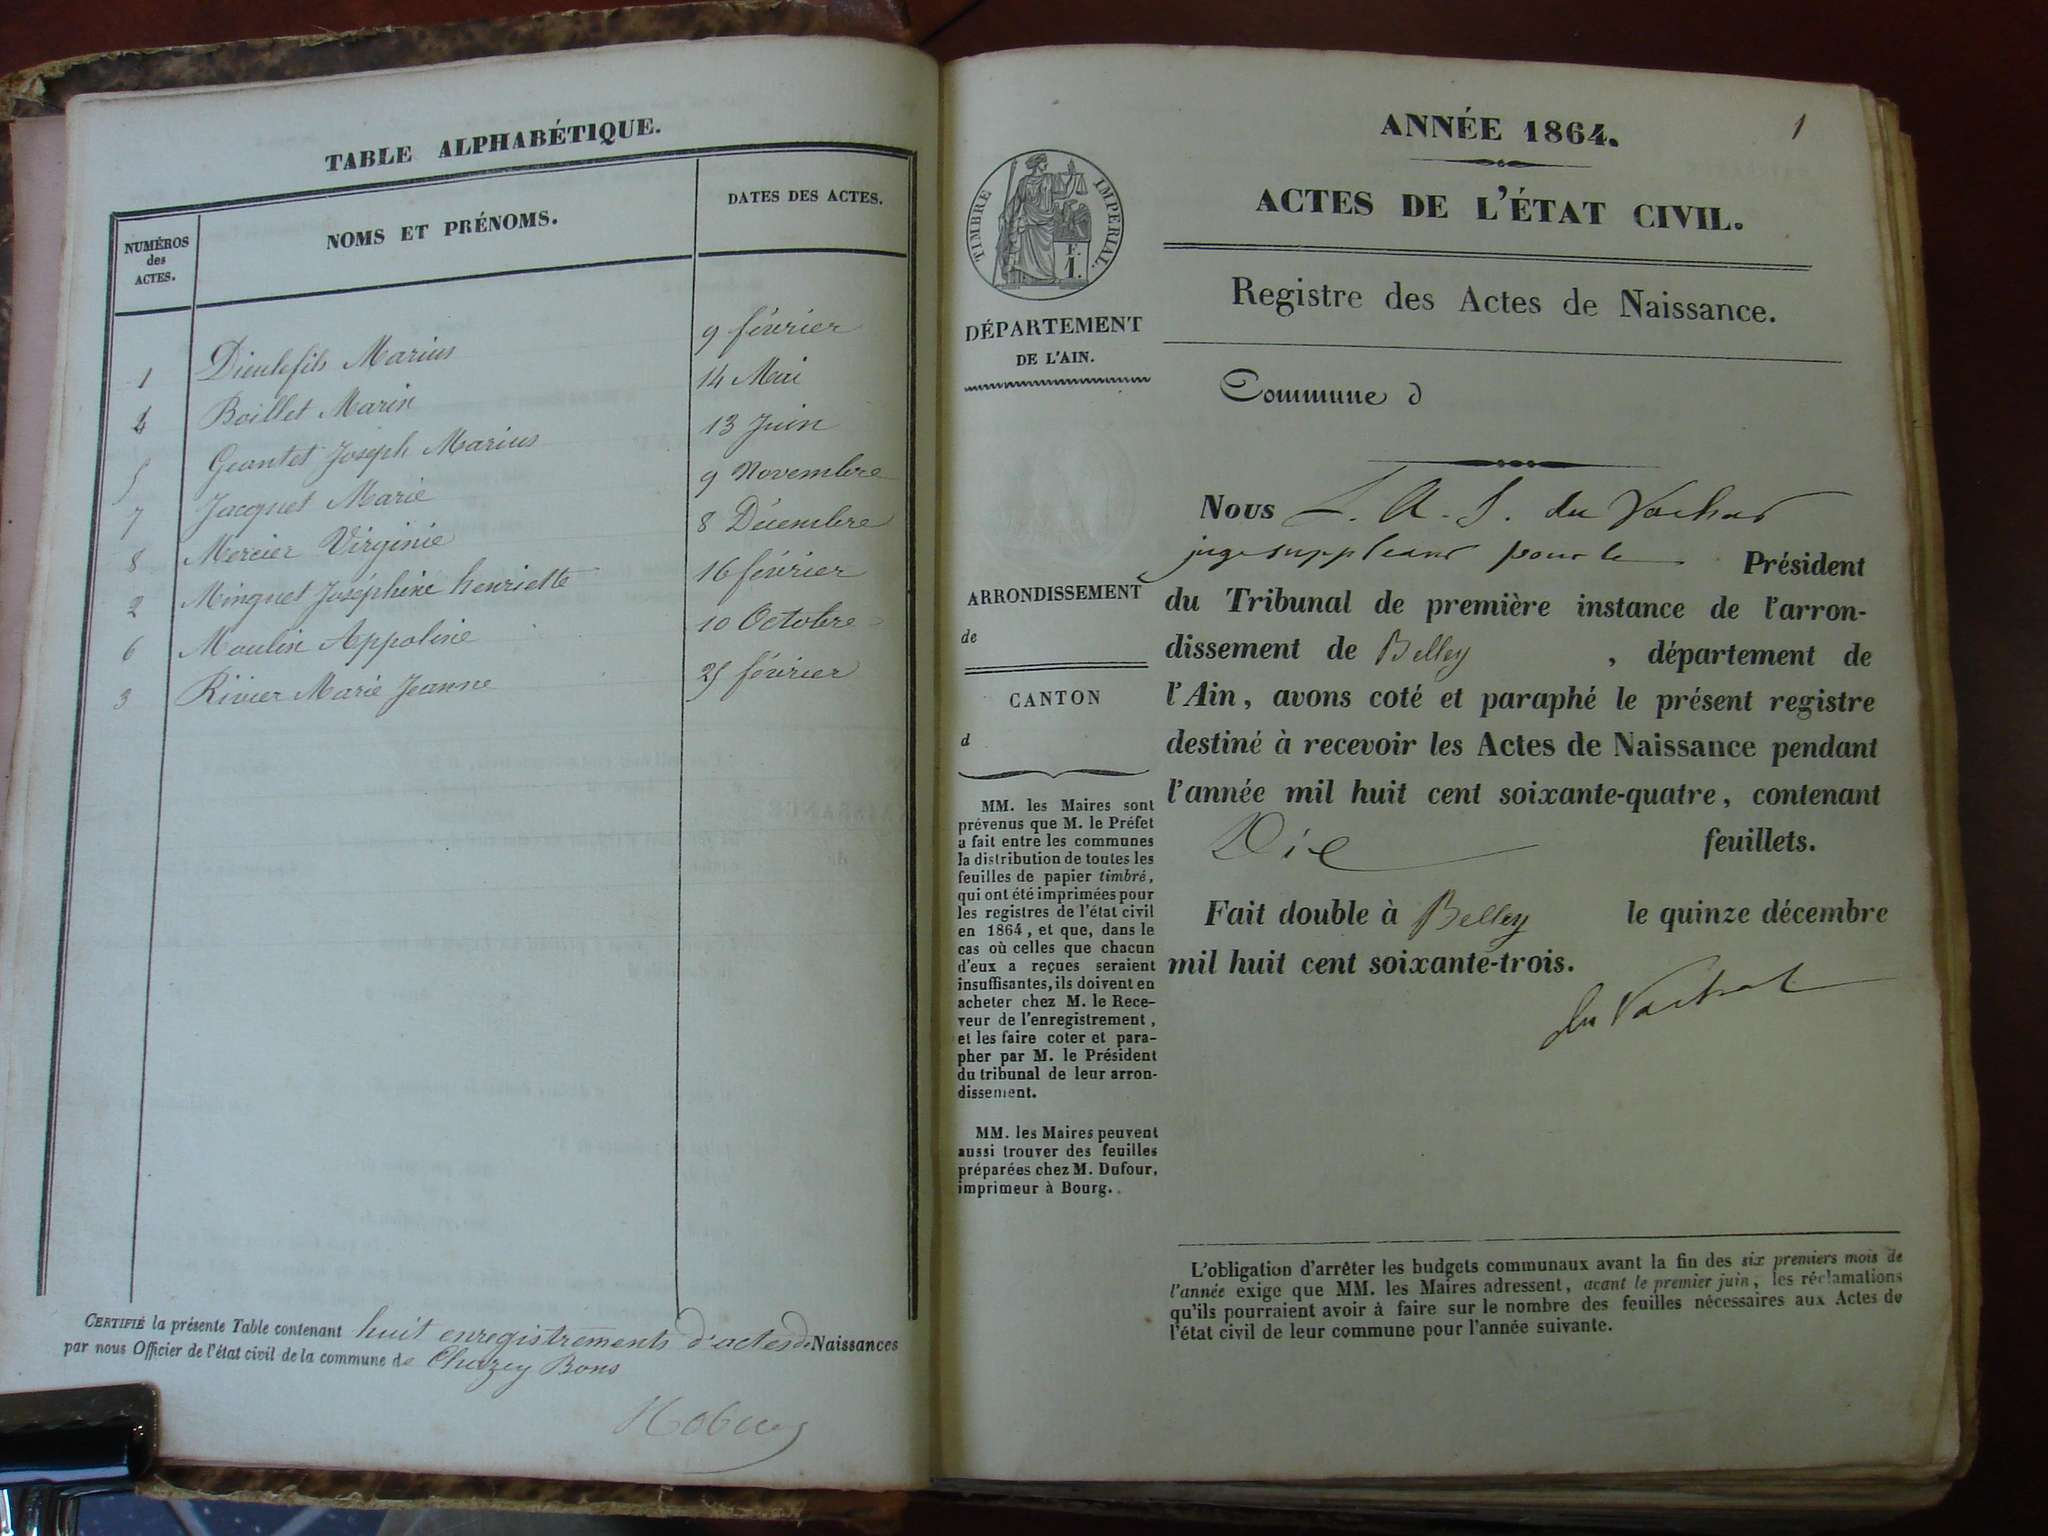 TABLE ALPHABÉTIQUE.
NUMÉROS des ACTES. NOMS ET PRÉNOMS. DATES DES ACTES.
1 Dieulefils Marius 9 février
4 Boillet Marin 14 Mai
5 Geantet Joseph Marius 13 Juin
7 Jacquet Marie 9 Novembre
8 Mercier Virginie 8 Décembre
2 Minguet Joséphine henriette 16 février
6 Moulin Appoline 10 Octobre
3 Rivier Marie Jeanne 25 février
CERTIFIÉ la présente Table contenant huit enregistrements d'actes de Naissances
par nous Officier de l'état civil de la commune de Chazey Bons
1
ANNÉE 1864.
ACTES DE L'ÉTAT CIVIL.
Registre des Actes de Naissance.
TIMBRE IMPERIAL.
F.
1.
DÉPARTEMENT
DE L'AIN.
Commune d
ARRONDISSEMENT
de
CANTON
d
MM. les Maires sont
prévenus que M. le Préfet
a fait entre les communes
la distribution de toutes les
feuilles de papier timbré,
qui ont été imprimées pour
les registres de l'état civil
en 1864, et que, dans le
cas où celles que chacun
d'eux a reçues seraient
insuffisantes, ils doivent en
acheter chez M. le Rece-
veur de l'enregistrement,
et les faire coter et para-
pher par M. le Président
du tribunal de leur arron-
dissement.
MM. les Maires peuvent
aussi trouver des feuilles
préparées chez M. Dufour,
imprimeur à Bourg.
Nous L. A. S. du Vachat
juge suppleant pour le Président
du Tribunal de première instance de l'arron-
dissement de Belley, département de
l'Ain, avons coté et paraphé le présent registre
destiné à recevoir les Actes de Naissance pendant
l'année mil huit cent soixante-quatre, contenant
Dix feuillets.
Fait double à Belley le quinze décembre
mil huit cent soixante-trois.
du Vachat
L'obligation d'arrêter les budgets communaux avant la fin des six premiers mois de
l'année exige que MM. les Maires adressent, avant le premier juin, les réclamations
qu'ils pourraient avoir à faire sur le nombre des feuilles nécessaires aux Actes de
l'état civil de leur commune pour l'année suivante.